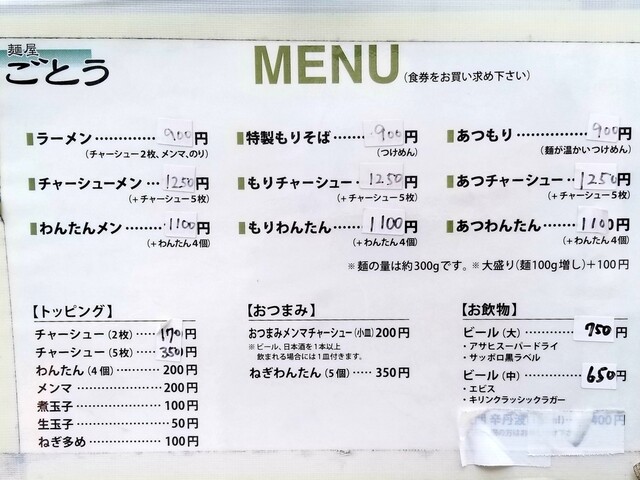 麺屋
ごとう
MENU(食券をお買い求め下さい)
ラーメン…………900円
(チャーシュー2枚、メンマ、のり)
チャーシューメン…1250円
(+チャーシュー5枚)
わんたんメン…1100円
(+わんたん4個)
特製もりそば……900円
(つけめん)
もりチャーシュー…1250円
(+チャーシュー5枚)
もりわんたん…1100円
(+わんたん4個)
あつもり…900円
(麺が温かいつけめん)
あつチャーシュー…1250円
(+チャーシュー5枚)
あつわんたん…1100円
(+わんたん4個)
※麺の量は約300gです。※大盛り(麺100g増し)+100円
【トッピング】
チャーシュー(2枚)……170円
チャーシュー(5枚)……350円
わんたん(4個)………200円
メンマ………………200円
煮玉子………………100円
生玉子…………………50円
ねぎ多め……………100円
【おつまみ】
おつまみメンマチャーシュー(小皿)200円
※ビール、日本酒を1本以上
飲まれる場合には1皿付きます。
ねぎわんたん(5個)……350円
【お飲物】
ビール(大)……750円
・アサヒスーパードライ
・サッポロ黒ラベル
ビール(中)……650円
・エビス
・キリンクラッシックラガー
辛丹波
400円